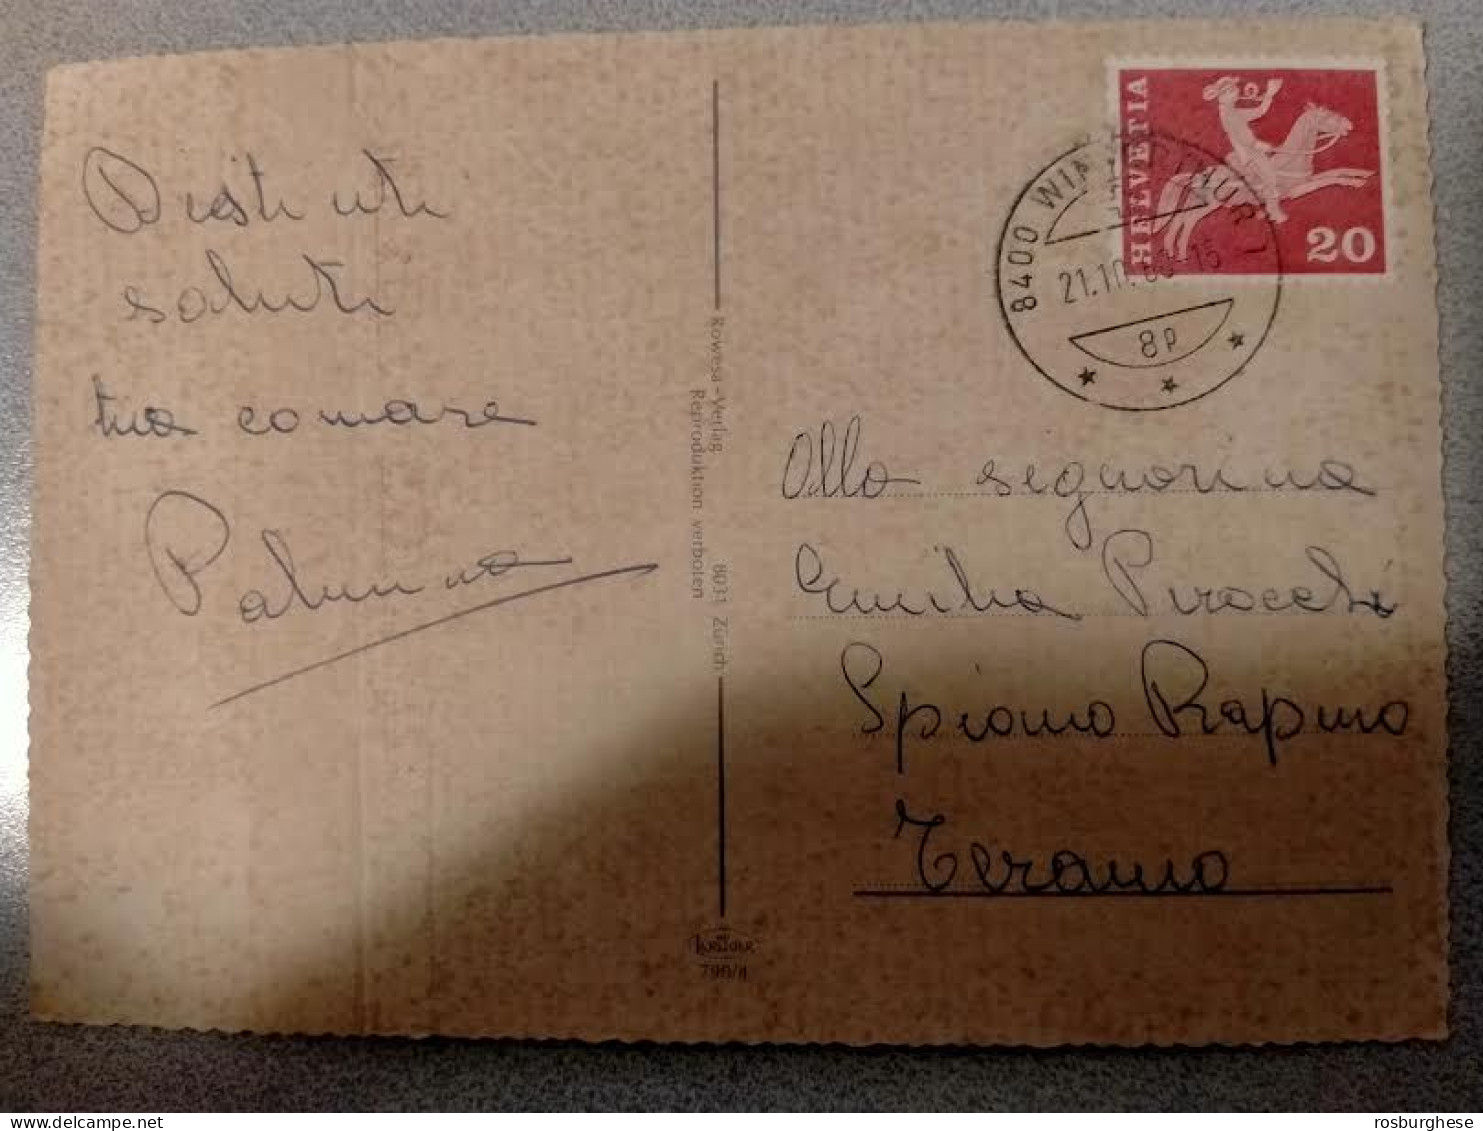 Distinti
saluti
tua comare
Palmina
Rowesa-Verlag 8031 Zürich
Reproduktion verboten
HELVETIA
20
8400 WINTERTHUR 1
8p
Alla signorina
Emilia Pirocchi
Spiano Rapino
Teramo
790/4
rosburghese